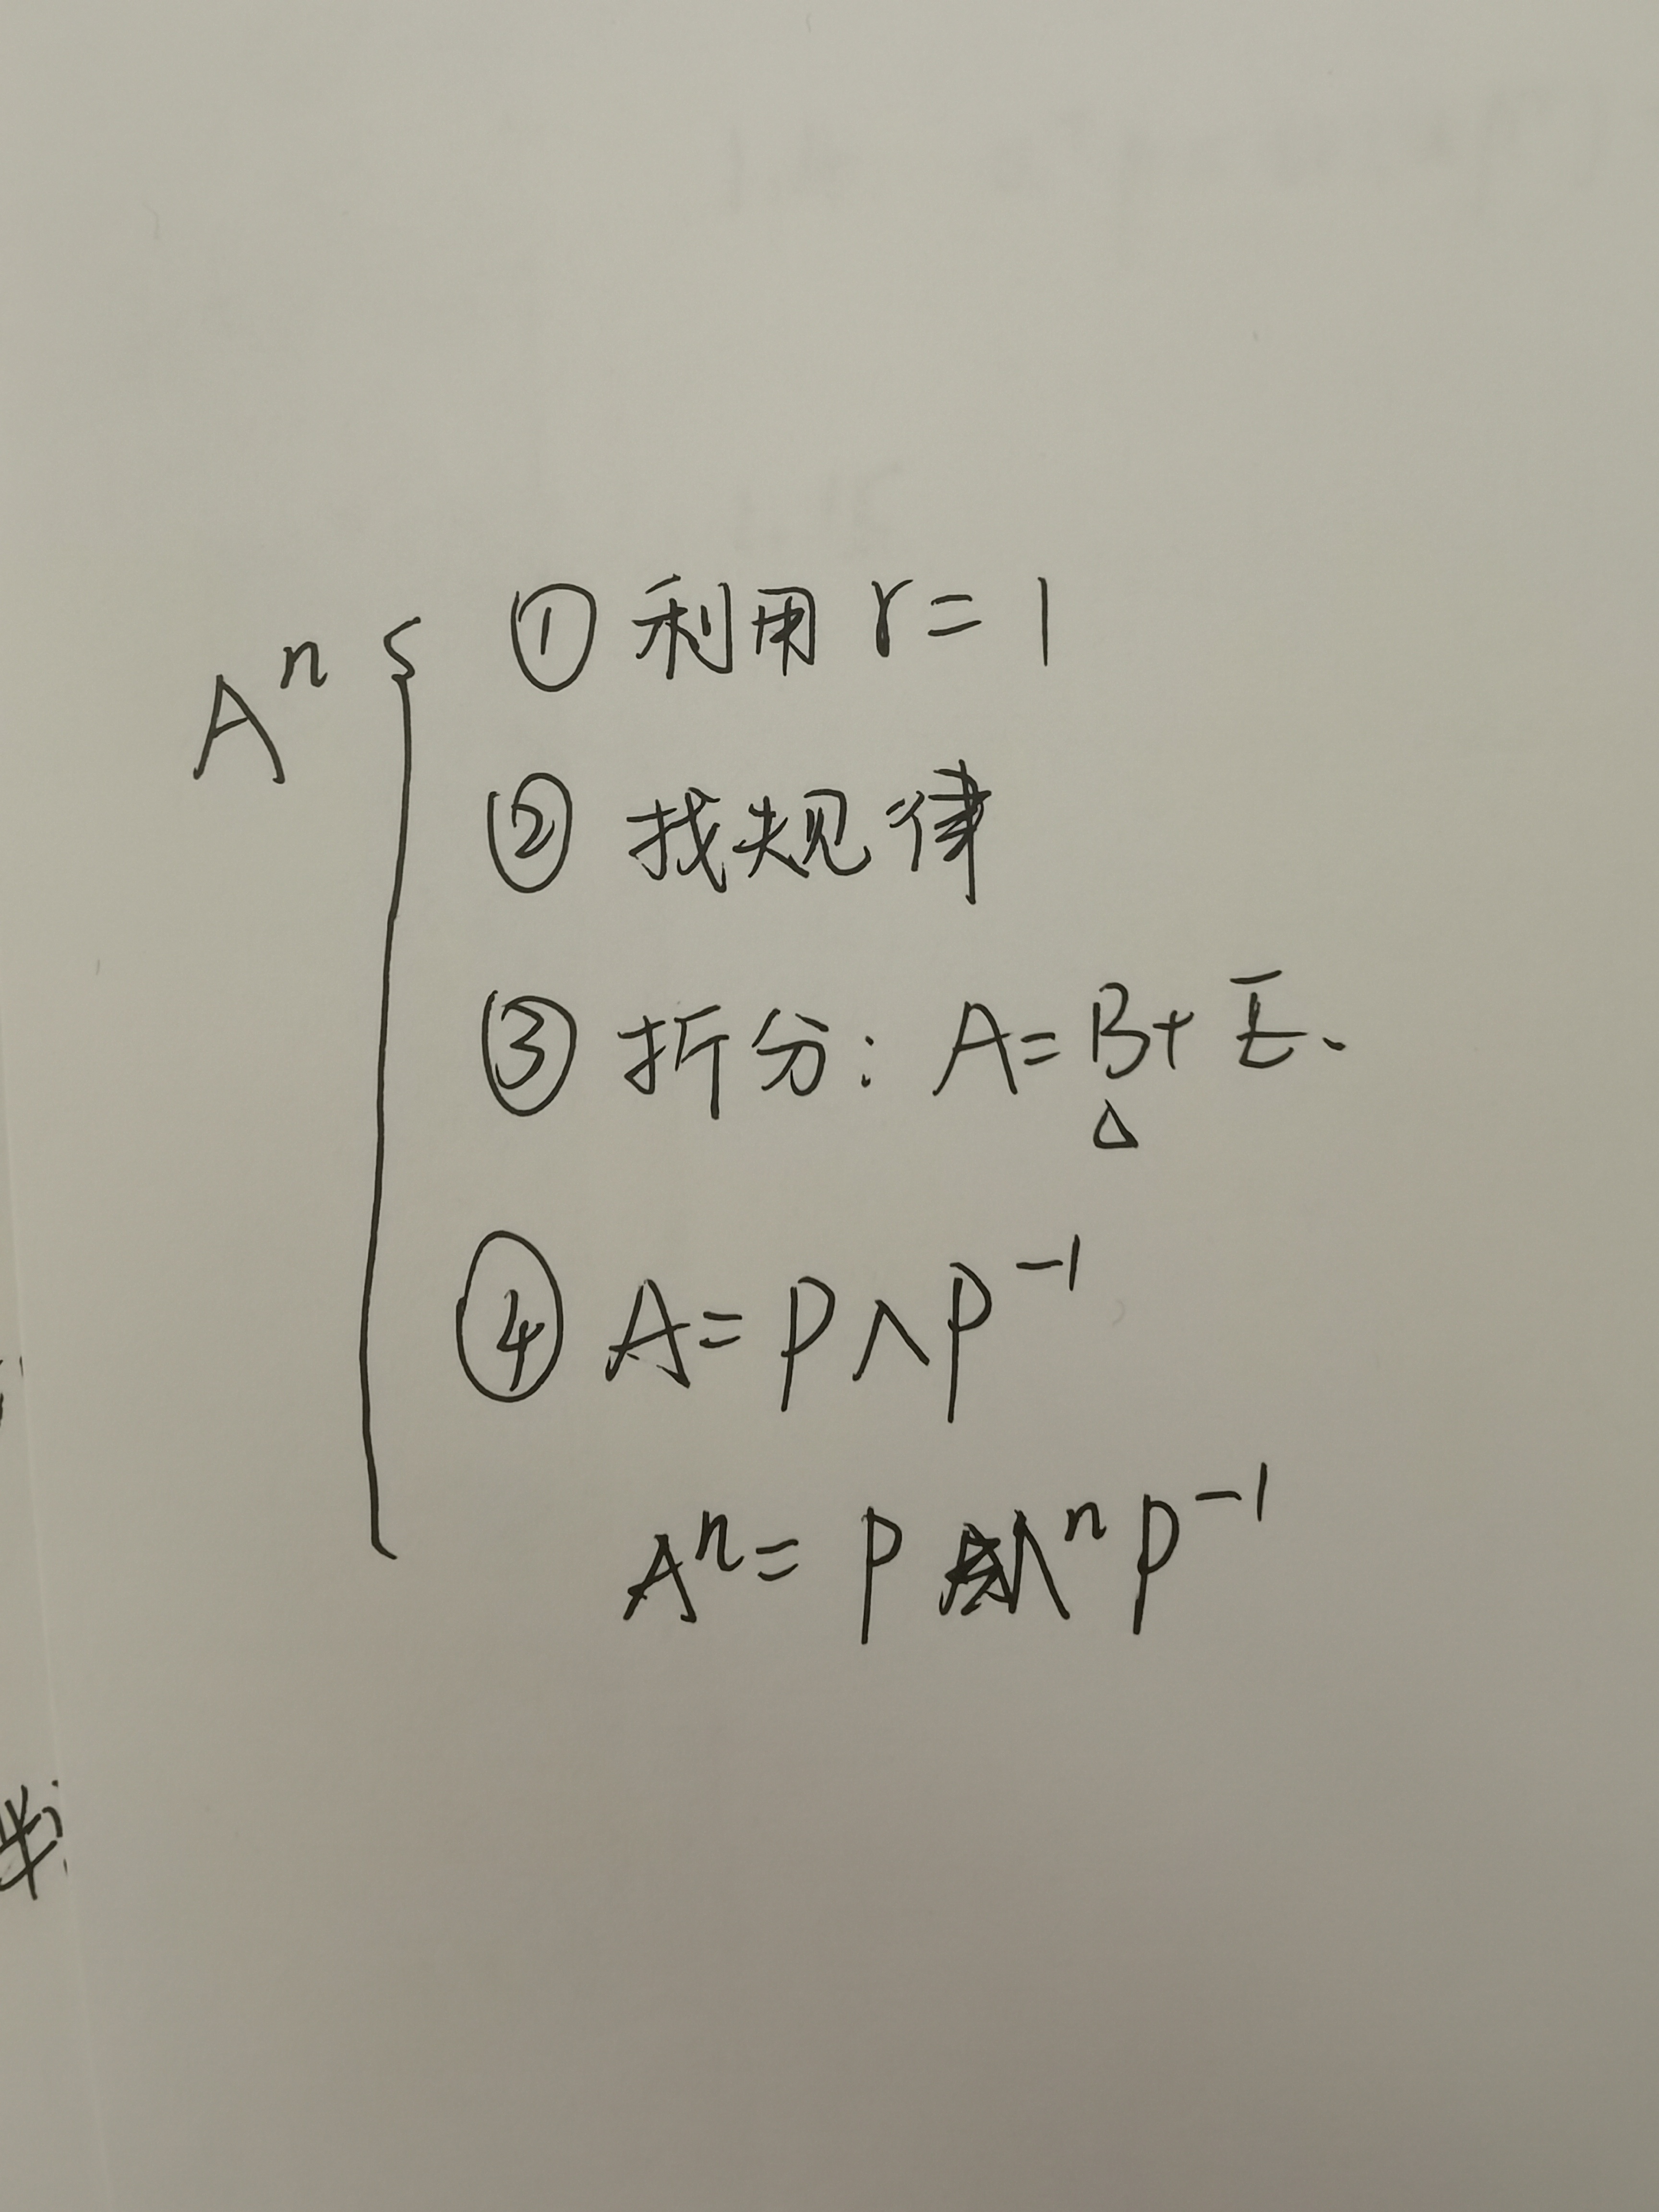 Aⁿ { ① 利用 r = 1
② 找规律
③ 折分: A = B + E.
△
④ A = PΛP⁻¹
Aⁿ = PΛⁿP⁻¹